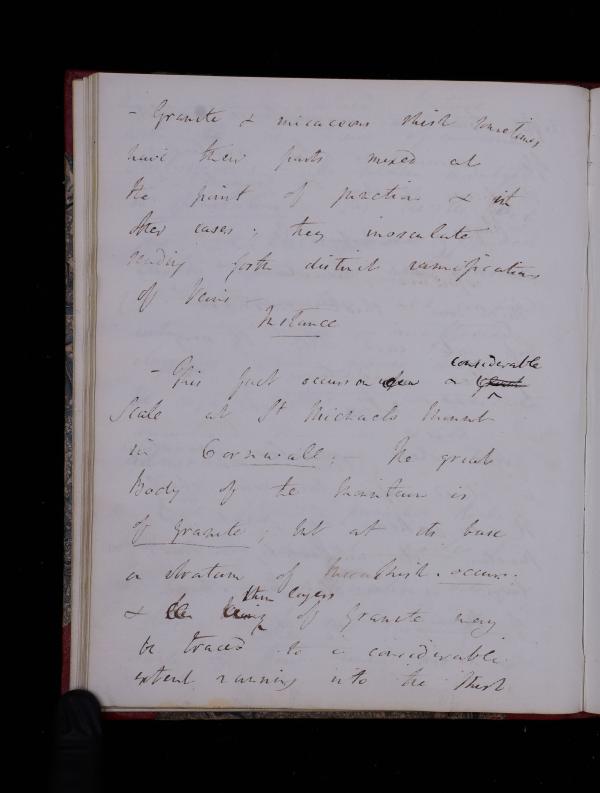 - Granite & micaceous shist sometimes
have their parts mixed at
the point of junction & in
other cases; they inosculate
sending forth distinct ramifications
of Veins
Instance
considerable
- This fact occurs on a &
Scale at St Michaels Mount
in Cornwall; - The great
Body of the Mountain is
of granite; but at its base
a stratum of shist occurs.
thin layers
& of Granite may
be traced to a considerable
extent running into the shist